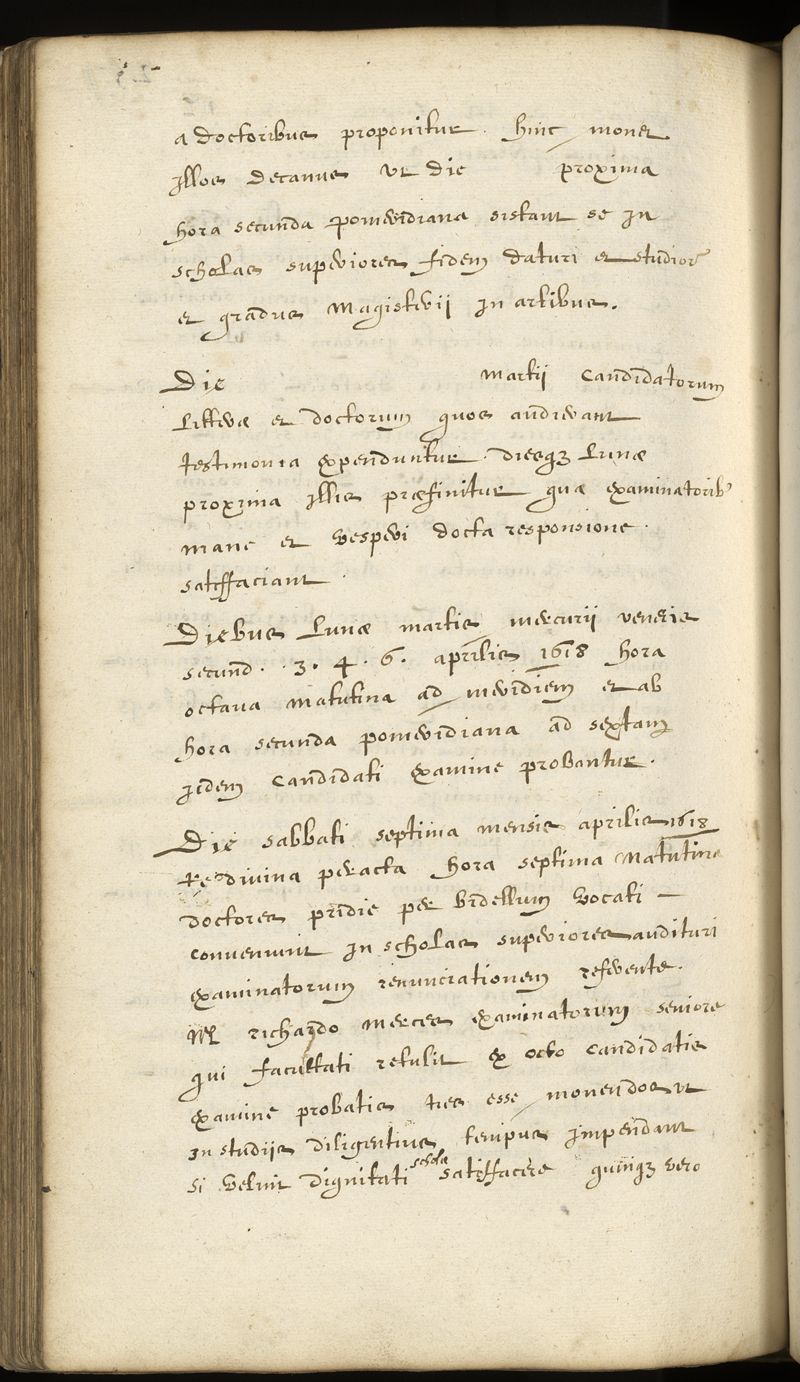 a doctoribus proponitur. hinc monet
illos decanus ut die proxima
hora secunda pomeridiana sistant se in
scholas superiores fidem daturi et studior
et gradus Magisterii in artibus.
Die Martii Candidatorum
Litteræ et doctorum quos audierant
testimonia expenduntur. diesq; Lunæ
proxima illis præfinitur qua examinatorib
mane et vesperi docta responsione.
satisfaciant.
Diebus Lunæ martis mercurii veneris
secund. 3. 4. 6. aprilis 1618 hora
octava matutina ad meridiem et ab
hora secunda pomeridiana ad sextam
iidem Candidati examine probantur.
Die sabbati septima mensis aprilis 1618
re divina peracta hora septima Matutina
doctores pridie per bidellum vocati —
conveniunt in scholas superiores audituri
examinatorum renunciationem referente.
M richardo mercier examinatorum seniore
qui facultati retulit ex octo candidatis
examine probatis tres esse monendos ut
in studiis diligentius tempus impendant
si velint dignitati scholæ satisfacere quinq; vero